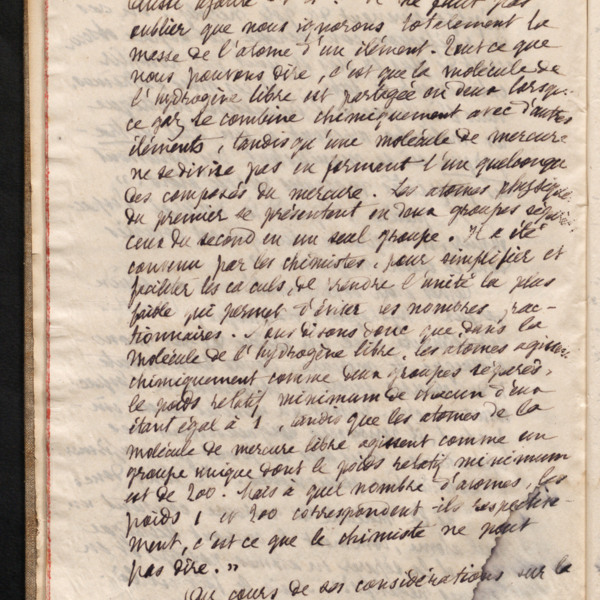 oublier que nous ignorons totalement la
masse de l'atome d'un élément. Tout ce que
nous pouvons dire, c'est que la molécule de
l'hydrogène libre est partagée en deux lorsque
ce gaz se combine chimiquement avec d'autres
éléments, tandis qu'une molécule de mercure
ne se divise pas en formant l'un quelconque
des composés du mercure. Les atomes physiques
du premier se présentent en deux groupes séparés,
ceux du second en un seul groupe. Il a été
convenu par les chimistes, pour simplifier et
faciliter les calculs, de rendre l'unité la plus
faible qui permet d'éviter les nombres frac-
tionnaires. Nous disons donc que dans la
molécule de l'hydrogène libre, les atomes agissent
chimiquement comme deux groupes séparés,
le poids relatif minimum de chacun d'eux
étant égal à 1, tandis que les atomes de la
molécule de mercure libre agissent comme un
groupe unique dont le poids relatif minimum
est de 200. Mais à quel nombre d'atomes, les
poids 1 et 200 correspondent-ils respective-
ment, c'est ce que le chimiste ne peut
pas dire. »
Au cours de ses considérations sur la